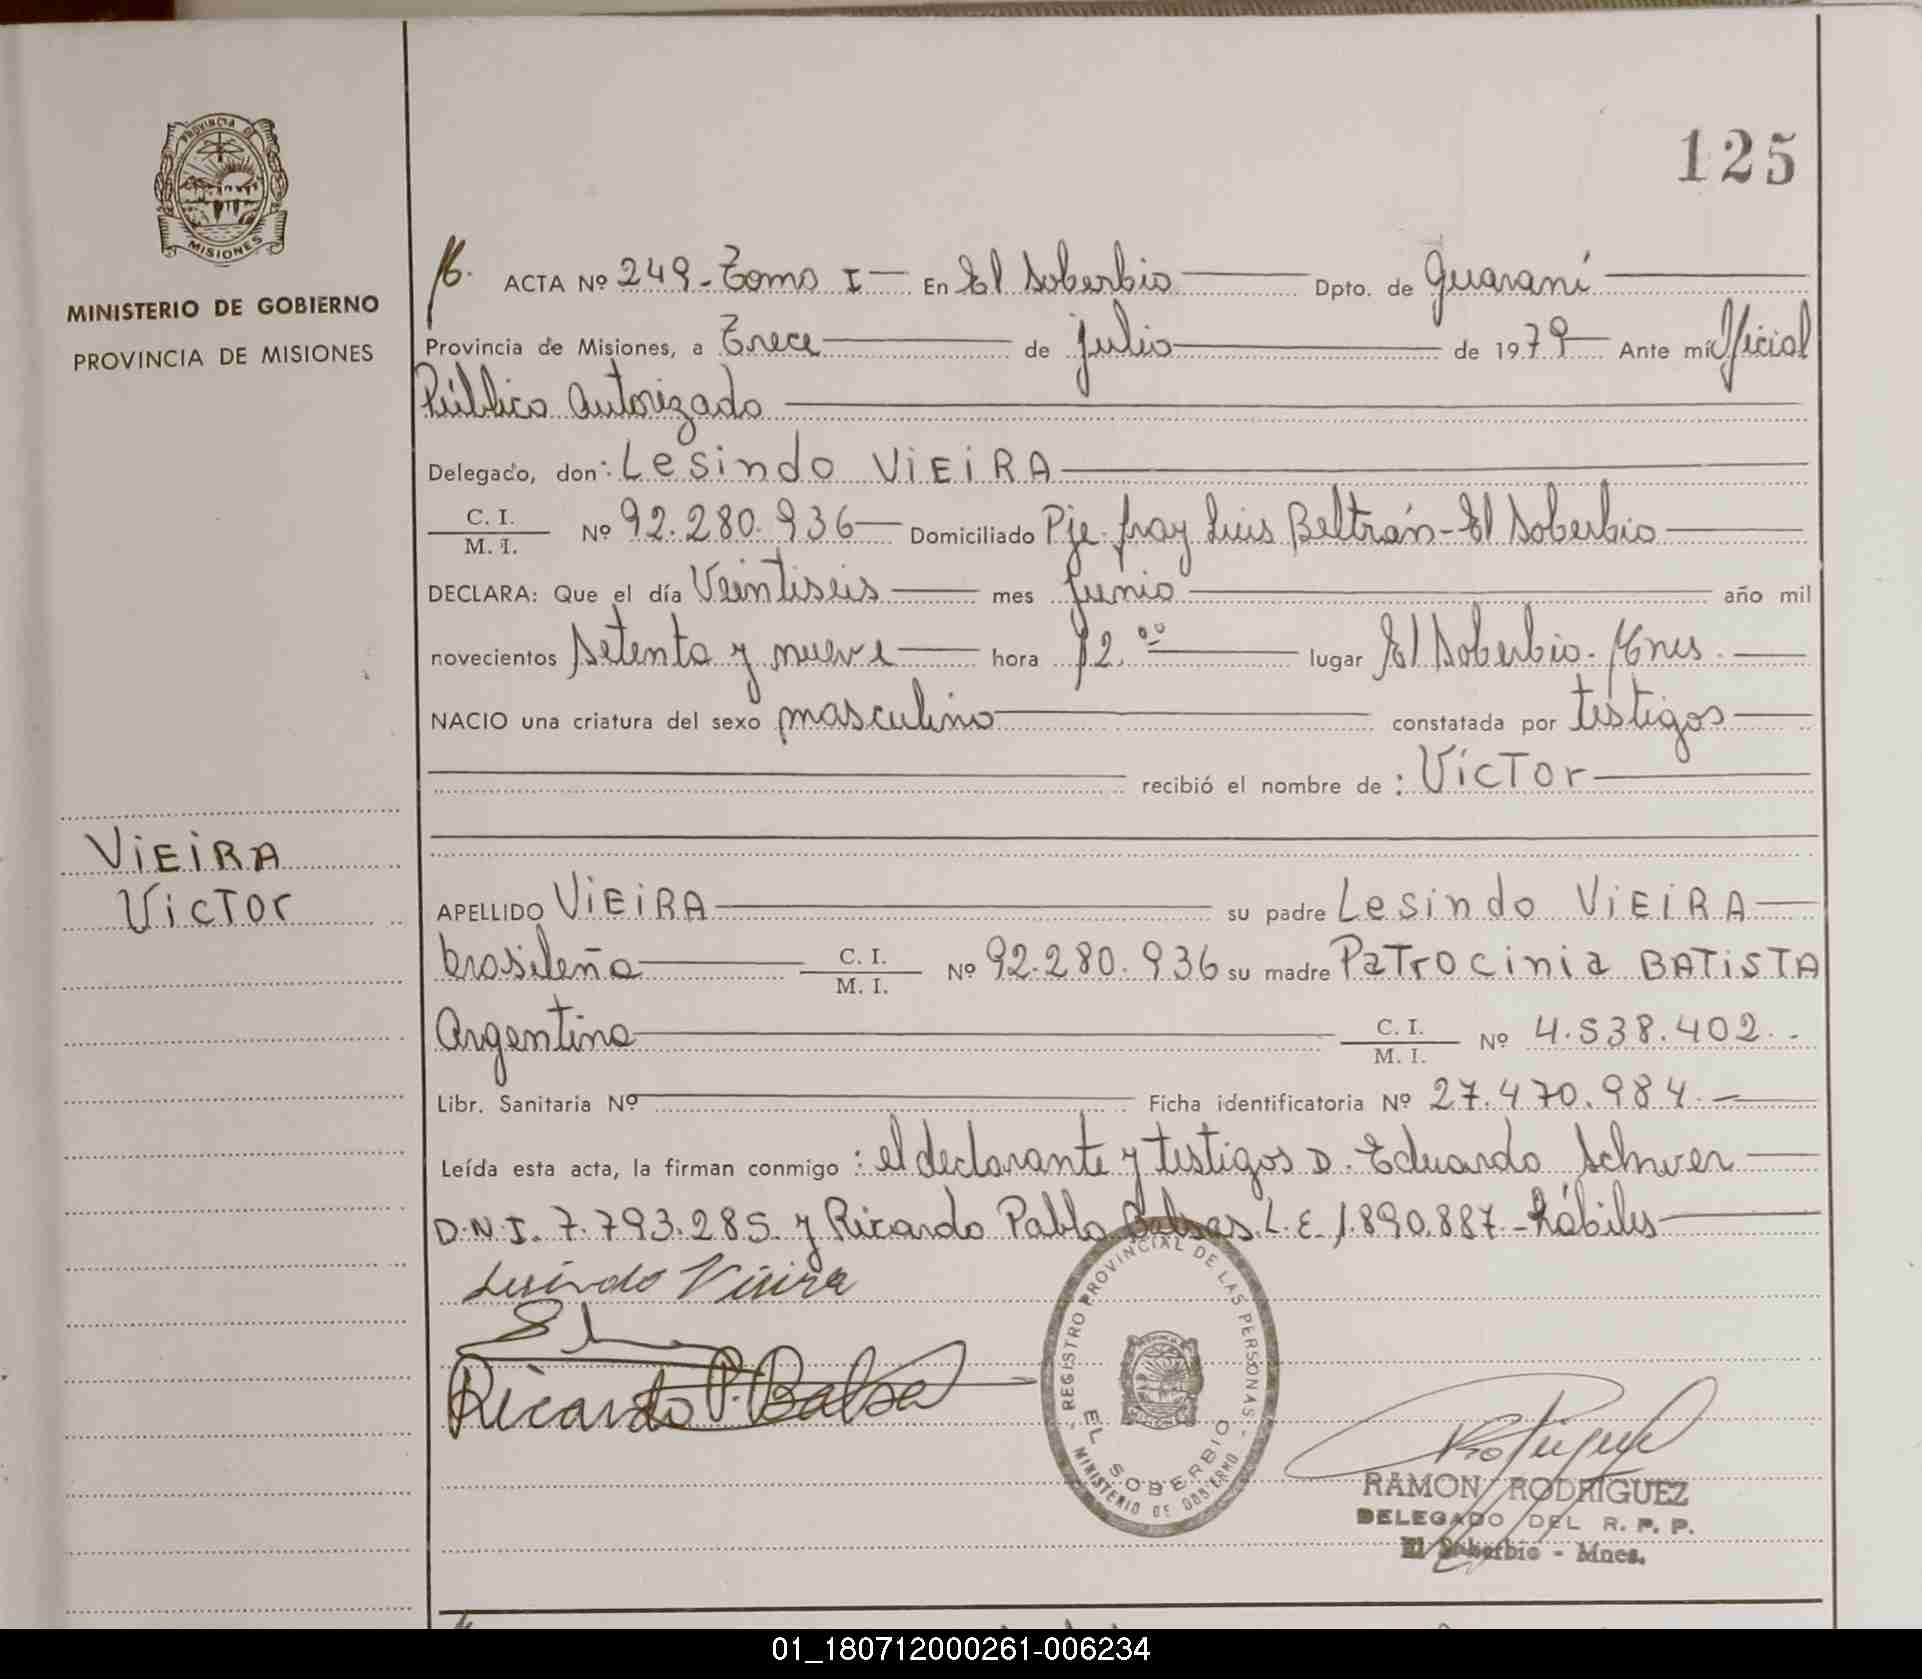 PROVINCIA DE
MISIONES
MINISTERIO DE GOBIERNO
PROVINCIA DE MISIONES
125
ACTA Nº 249 - Tomo I — En El Soberbio — Dpto. de Guaraní —
Provincia de Misiones, a Trece — de julio — de 1979 — Ante mi Oficial
Público Autorizado —
Delegado, don: Lesindo VIEIRA —
C. I. / M. I. Nº 92.280.936 — Domiciliado Pje. fray Luis Beltrán - El Soberbio —
DECLARA: Que el día Veintiseis — mes junio — año mil
novecientos setenta y nueve — hora 12.°° — lugar El Soberbio. Mnes. —
NACIO una criatura del sexo masculino — constatada por testigos —
— recibió el nombre de: Víctor —
VIEIRA
Victor
APELLIDO VIEIRA — su padre Lesindo VIEIRA —
brasileña — C. I. / M. I. Nº 92.280.936 su madre Patrocinia BATISTA
Argentina — C. I. / M. I. Nº 4.538.402.-
Libr. Sanitaria Nº — Ficha identificatoria Nº 27.470.984.—
Leída esta acta, la firman conmigo: el declarante y testigos D. Eduardo Schwer —
D.N.I. 7.793.285. y Ricardo Pablo Balsas. L.E. 1.890.887 - hábiles —
Lesindo Vieira
Ricardo P. Balsa
REGISTRO PROVINCIAL DE LAS PERSONAS
EL SOBERBIO
MINISTERIO DE GOBIERNO
RAMON RODRIGUEZ
DELEGADO DEL R. P. P.
El Soberbio - Mnes.
01_180712000261-006234